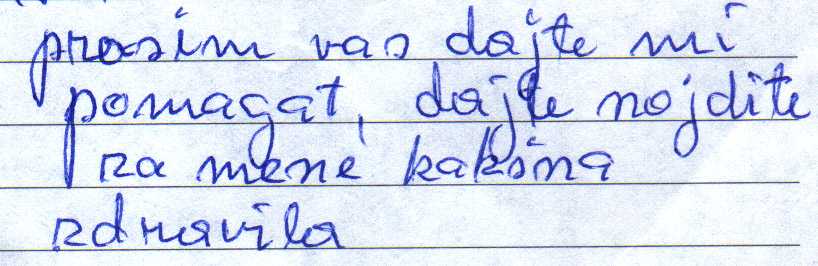 prosim vas dajte mi
pomagat, dajte nojdite
za mene kaksina
zdravila